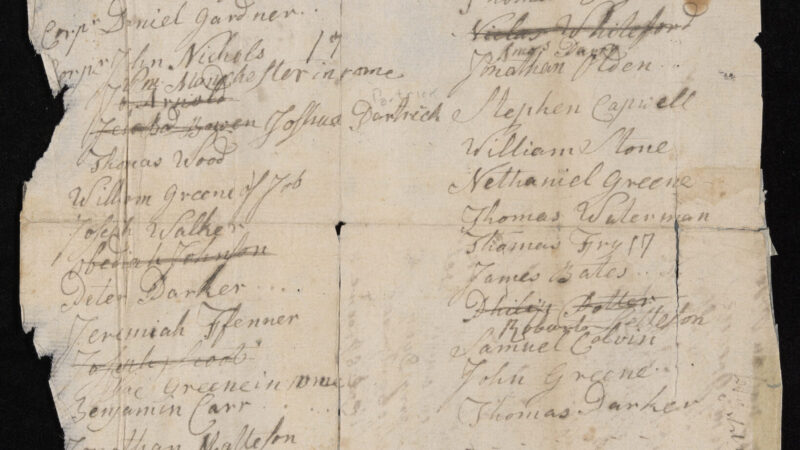 Corpr Daniel Gardner..
Corpr John Nichols 17
Wm Manchester in rome
Arnold
Bowen Joshua Dartrick
Thomas Wood
William Greene of Job
Joseph Walker
Obediah Johnson
Peter Darker ....
Jeremiah Ffenner
Joseph
Greene in rome
Benjamin Carr ....
Jonathan Matteson
Niclas Whiteford
Amos
Jonathan Olden ..
Stephen Capwell
William Stone
Nethaniel Greene
Thomas Waterman
Thomas Fry 17
James Bates ...
Philip Potter
Robard Matteson
Samuel Colvin
John Greene ...
Thomas Darker